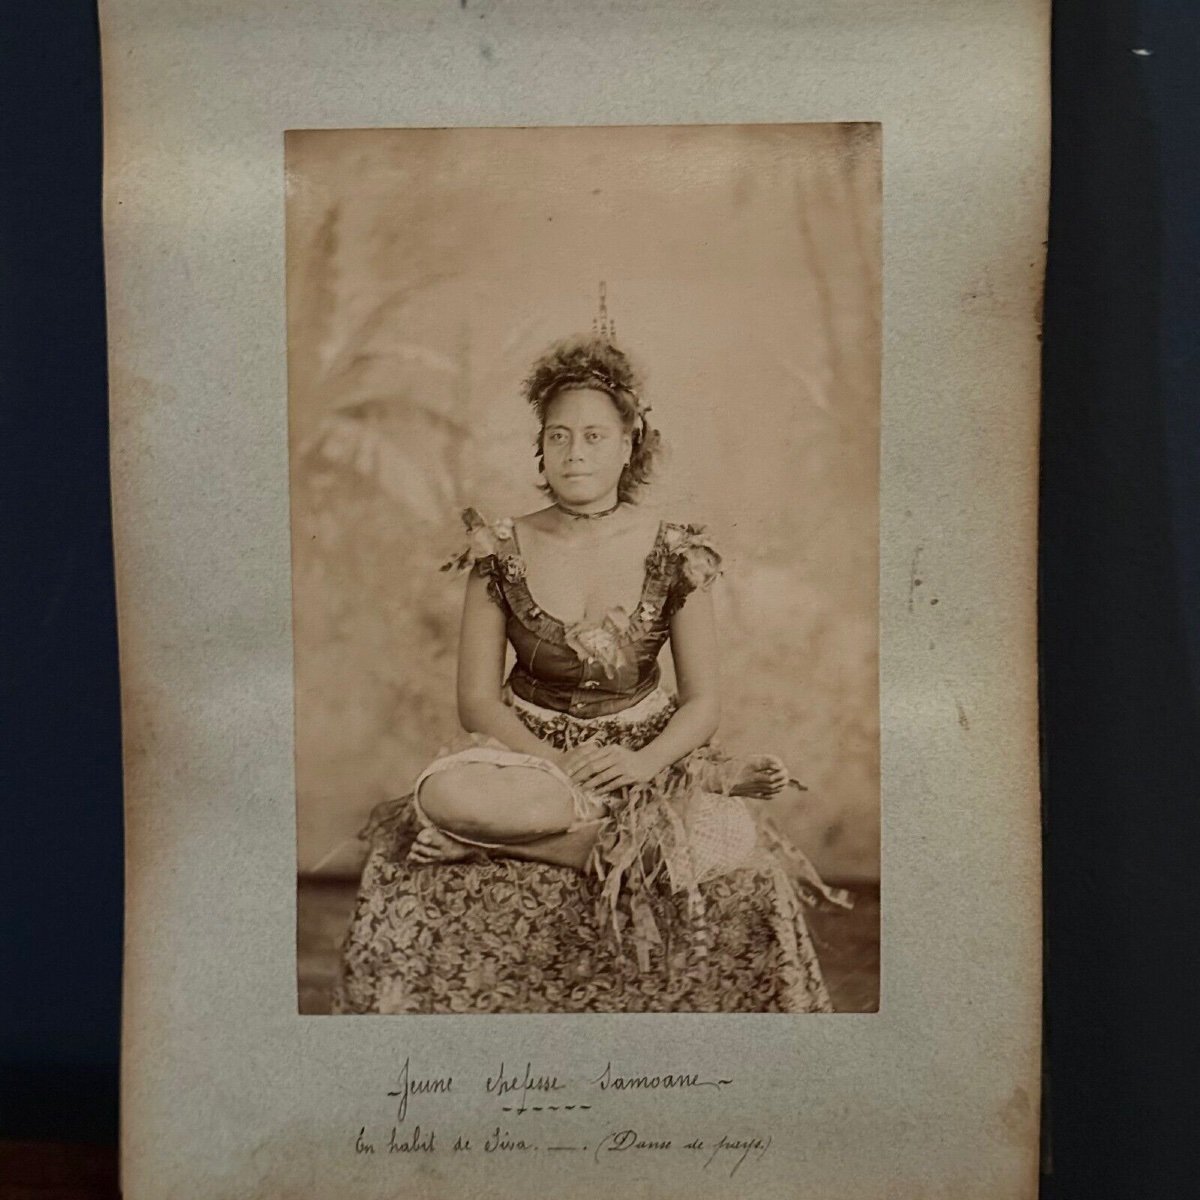 - Jeune chefesse Samoane -
En habit de Siva. —. (Danse de pays.)